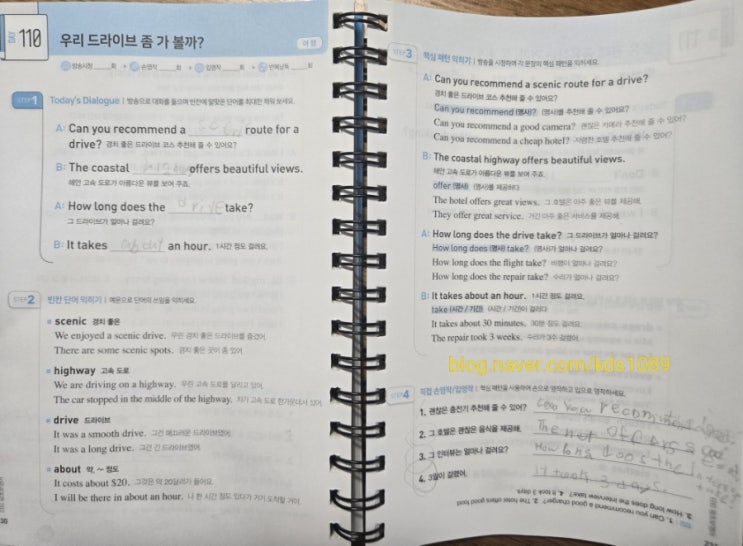 DAY 110
우리 드라이브 좀 가 볼까?
여행
방송시청 ____회 + 손영작 ____회 + 입영작 ____회 + 반복낭독 ____회
STEP 1 Today's Dialogue | 방송으로 대화를 들으며 빈칸에 알맞은 단어를 최대한 채워 보세요.
A: Can you recommend a scenic route for a
drive? 경치 좋은 드라이브 코스 추천해 줄 수 있어요?
B: The coastal highway offers beautiful views.
해안 고속 도로가 아름다운 뷰를 보여 주죠.
A: How long does the drive take?
그 드라이브가 얼마나 걸려요?
B: It takes about an hour. 1시간 정도 걸려요.
STEP 2 빈칸 단어 익히기 | 예문으로 단어의 쓰임을 익히세요.
scenic 경치 좋은
We enjoyed a scenic drive. 우린 경치 좋은 드라이브를 즐겼어.
There are some scenic spots. 경치 좋은 곳이 좀 있어.
highway 고속 도로
We are driving on a highway. 우린 고속 도로를 달리고 있어.
The car stopped in the middle of the highway. 차가 고속 도로 한가운데서 섰어.
drive 드라이브
It was a smooth drive. 그건 매끄러운 드라이브였어.
It was a long drive. 그건 긴 드라이브였어.
about 약, ~ 정도
It costs about $20. 그것은 약 20달러가 들어요.
I will be there in about an hour. 나 한 시간 정도 있다가 거기 도착할 거야.
STEP 3 핵심 패턴 익히기 | 방송을 시청하며 각 문장의 핵심 패턴을 익히세요.
A: Can you recommend a scenic route for a drive?
경치 좋은 드라이브 코스 추천해 줄 수 있어요?
Can you recommend (명사)? (명사)를 추천해 줄 수 있어요?
Can you recommend a good camera? 괜찮은 카메라 추천해 줄 수 있어?
Can you recommend a cheap hotel? 저렴한 호텔 추천해 줄 수 있어?
B: The coastal highway offers beautiful views.
해안 고속 도로가 아름다운 뷰를 보여 주죠.
offer (명사) (명사)를 제공하다
The hotel offers great views. 그 호텔은 아주 좋은 뷰를 제공해.
They offer great service. 거긴 아주 좋은 서비스를 제공해.
A: How long does the drive take? 그 드라이브가 얼마나 걸려요?
How long does (명사) take? (명사)가 얼마나 걸려요?
How long does the flight take? 비행이 얼마나 걸려요?
How long does the repair take? 수리가 얼마나 걸려요?
B: It takes about an hour. 1시간 정도 걸려요.
take (시간 / 기간) (시간 / 기간)이 걸리다
It takes about 30 minutes. 30분 정도 걸려요.
The repair took 3 weeks. 수리가 3주 걸렸어.
blog.naver.com/kds1089
STEP 4 직접 손영작/입영작 | 핵심 패턴을 사용하여 손으로 영작하고 입으로 영작하세요.
1. 괜찮은 충전기 추천해 줄 수 있어? Can you recommend
2. 그 호텔은 괜찮은 음식을 제공해. The hot offers good
3. 그 인터뷰는 얼마나 걸려요? How long does the
4. 3일이 걸렸어. It took 3 days.
1. Can you recommend a good charger? 2. The hotel offers good food.
3. How long does the interview take? 4. It took 3 days.